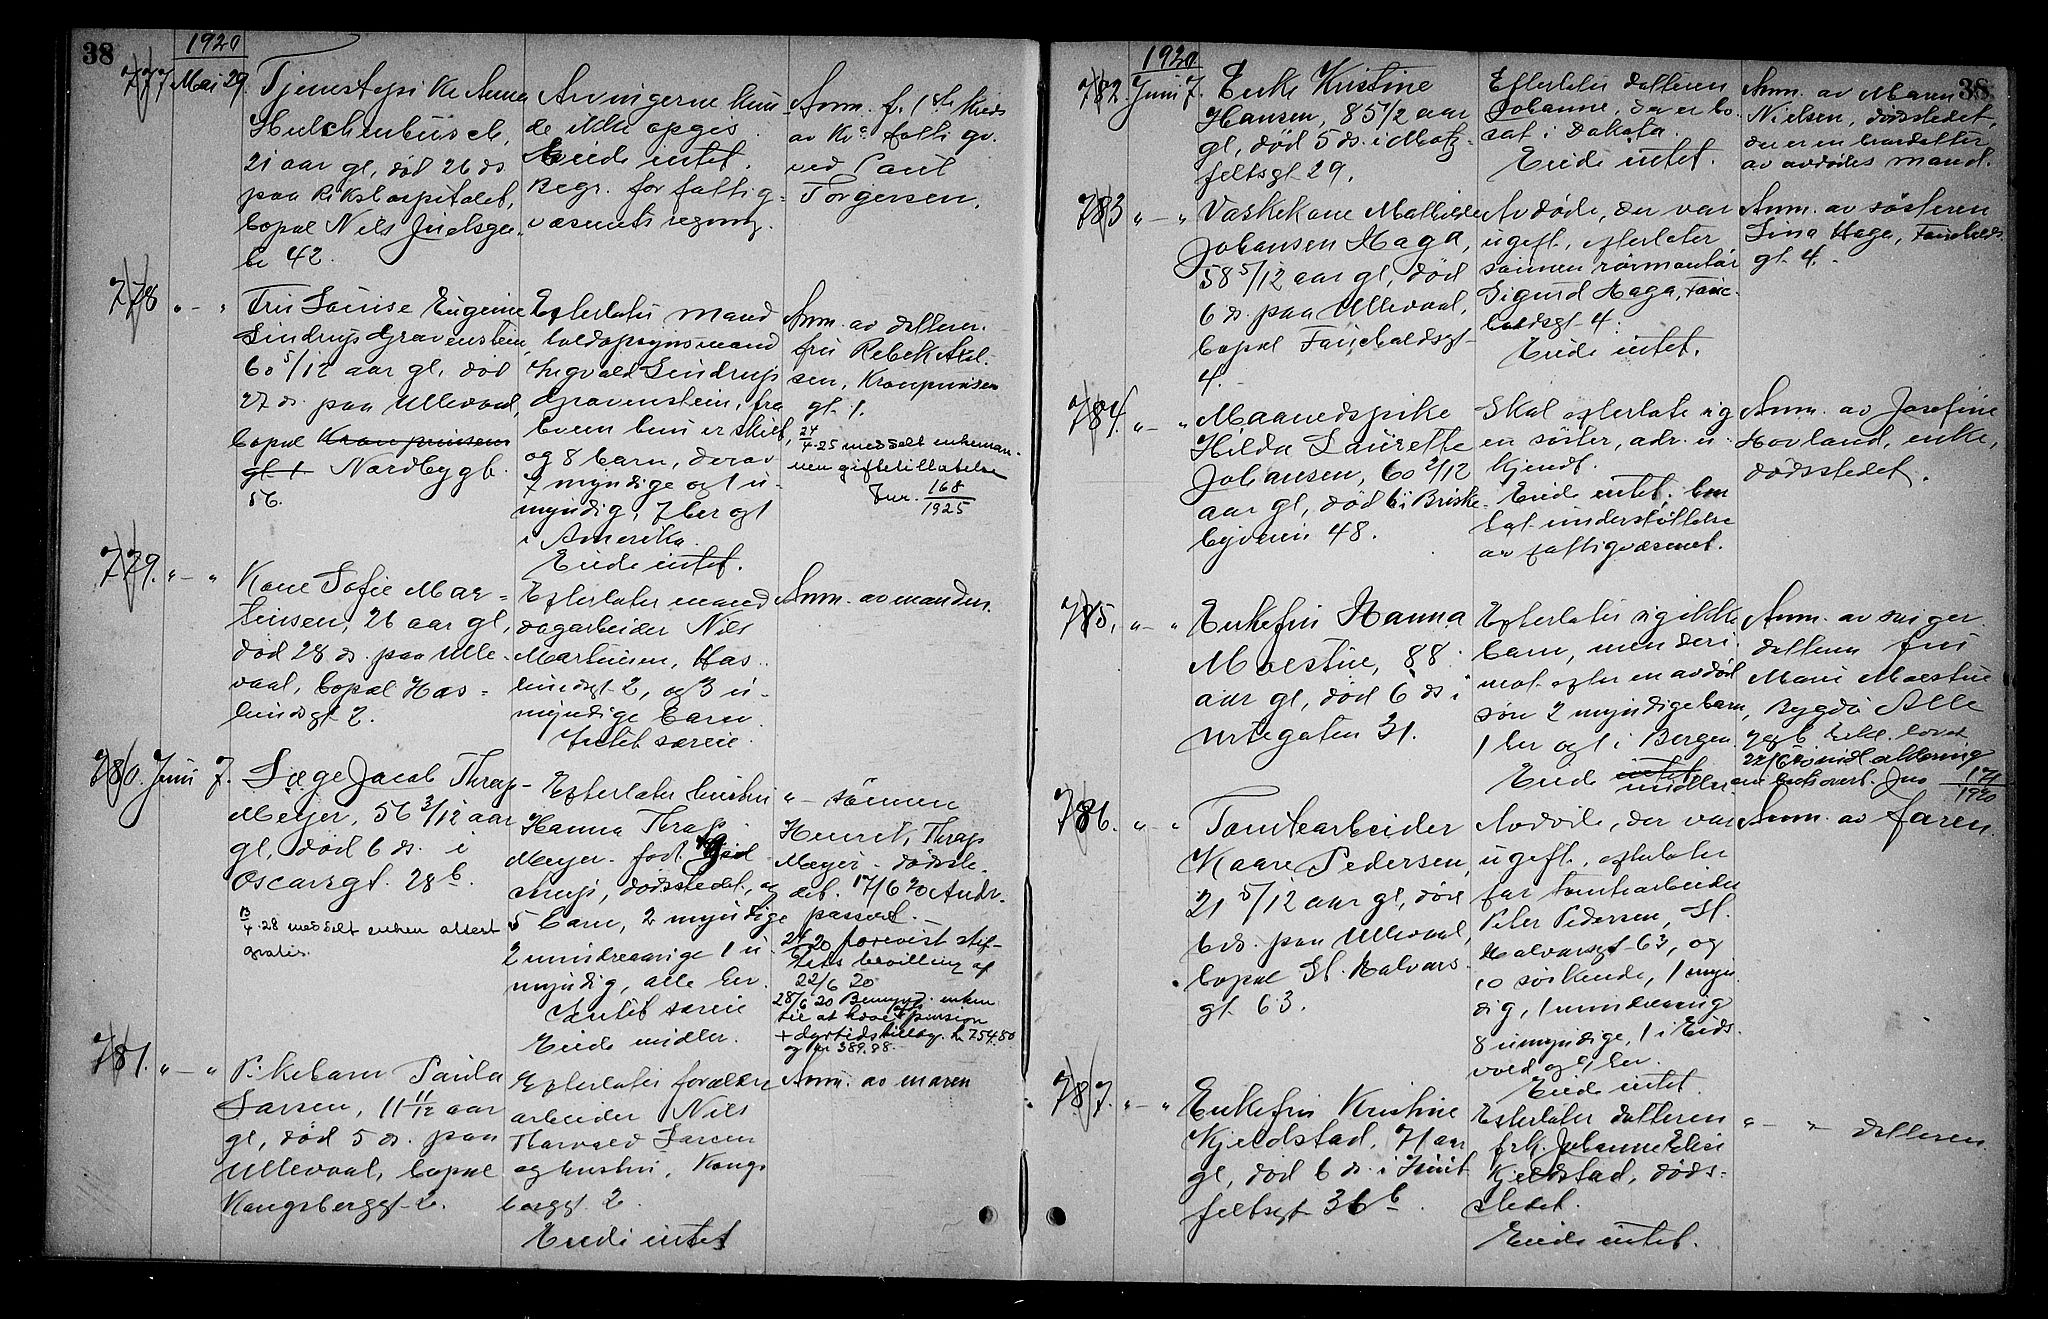 38
1920
777 Mai 29.
Tjenestepike Anna
21 aar gl, død 26 ds
paa Rikshospitalet,
bopæl Nils Juelsga-
te 42.
Arvingerne kun-
de ikke opgis.
Eiede intet.
Begr. for fattig-
væsenets regning.
Anm. f. 1ste
ved Paul
Torgersen.
778 " — "
Fru Louise Eugenie
Lindrup Gravenstein,
60 5/12 aar gl, død
27 ds. paa Ullevaal,
bopæl Kronprinsens
gt 1 Nordbygt.
56.
Efterlater mand
toldopsynsmand
Ingvald Lindrup
Gravenstein, fra
hvem hun er skilt,
og 8 barn, derav
7 myndige og 1 u-
myndig, 7 her og 1
i Amerika.
Eiede intet.
Anm. av datteren
fru Rebek Axel-
sen, Kronprinsens
gt. 1.
24/4-25 meddelt enkeman-
nen giftetillatelse
Jnr. 168/1925
779. " — "
Kone Sofie Mar-
tinsen, 26 aar gl,
død 28 ds. paa Ulle-
vaal, bopæl Has-
lundsgt 2.
Efterlater mand
dagarbeider Nils
Martinsen, Has-
lundsgt 2, og 3 u-
myndige barn.
Intet særeie.
Anm. av manden.
780. Juni 7.
Læge Jacob Thrap-
Meyer, 56 3/12 aar
gl, død 6 ds. i
Oscarsgt. 28b.
13/4-28 meddelt enken attest
gratis.
Efterlater hustru
Hanna Thrap
Meyer, født
dødsstedet, og
5 barn, 2 myndige
2 mindreaarige 1 u-
myndig, alle her.
Intet særeie
Eiede midler.
" — sønnen
Henrik Thrap
Meyer - dødste-
det. 17/6 20 Andr.
passert.
24/6 20 forevist skif-
tets bevilling af
22/6 20
28/6 20 Bemynd. enken
til at hæve afds pension
+ dyrtidstillæg. kr 754.50
og kr 389.98.
781. " — "
Pikebarn Paula
Larsen, 11 11/12 aar
gl, død 5 ds. paa
Ullevaal, bopæl
Kongsberggt. 2.
Efterlater forældre
arbeider Nils
Thorvald Larsen
og hustru, Kongs-
berggt. 2.
Eiede intet
Anm. av moren
38
1920
782 Juni 7.
Enke Kristine
Hansen, 85 1/2 aar
gl, død 5 ds. i Motz-
feltsgt 29.
Efterlater datteren
Johanne, der er bo-
sat i Dakota.
Eiede intet.
Anm. av Maren
Nielsen, dødsstedet,
der er en brordatter
av avdødes mand.
783 " — "
Vaskekone Mathilde
Johansen Haga,
58 5/12 aar gl, død
6 ds. paa Ullevaal,
bopæl Fauchaldsgt
4.
Avdøde, der var
ugift, efterlater
sønnen rørmontør
Sigurd Haga, Fauc-
haldsgt 4.
Eiede intet.
Anm. av søsteren
Lina Haga, Fauchalds
gt. 4.
784. " — "
Maanedspike
Hilda Laurette
Johansen, 60 2/12
aar gl, død 6 i Briske-
byveien 48.
Skal efterlate sig
en søster, adr. u-
kjendt.
Eiede intet, hun
hat understøttelse
av fattigvæsenet.
Anm. av Josefine
Hovland, enke,
dødsstedet.
785. " — "
Enkefru Hanna
Moestue, 88
aar gl, død 6 ds i
Urtegaten 31.
Efterlater sig ikke
barn, men deri-
mot efter en avdød
søn 2 myndige barn,
1 her og 1 i Bergen.
Eiede intet midler
Anm. av sviger-
datteren fru
Marie Moestue
Bygdø Alle
Jno 171/1920
786. " — "
Tomtearbeider
Kaare Pedersen,
21 5/12 aar gl, død
6 ds. paa Ullevaal,
bopæl St. Halvars-
gt 63.
Avdøde, der var
ugift, efterlater
far tomtearbeider
Peter Pedersen, St.
Halvarsgt 63, og
10 søskende, 1 myn-
dig, 1 mindreaarig
8 umyndige, 1 i Eids-
vold og 9 her.
Eiede intet.
Anm. av faren.
787. " — "
Enkefru Kristine
Kjeldstad, 71 aar
gl, død 6 ds. i Huit-
feltsgt 36b.
Efterlater datteren
frk. Johanne Elise
Kjeldstad, døds-
stedet.
Eiede intet.
" — " datteren